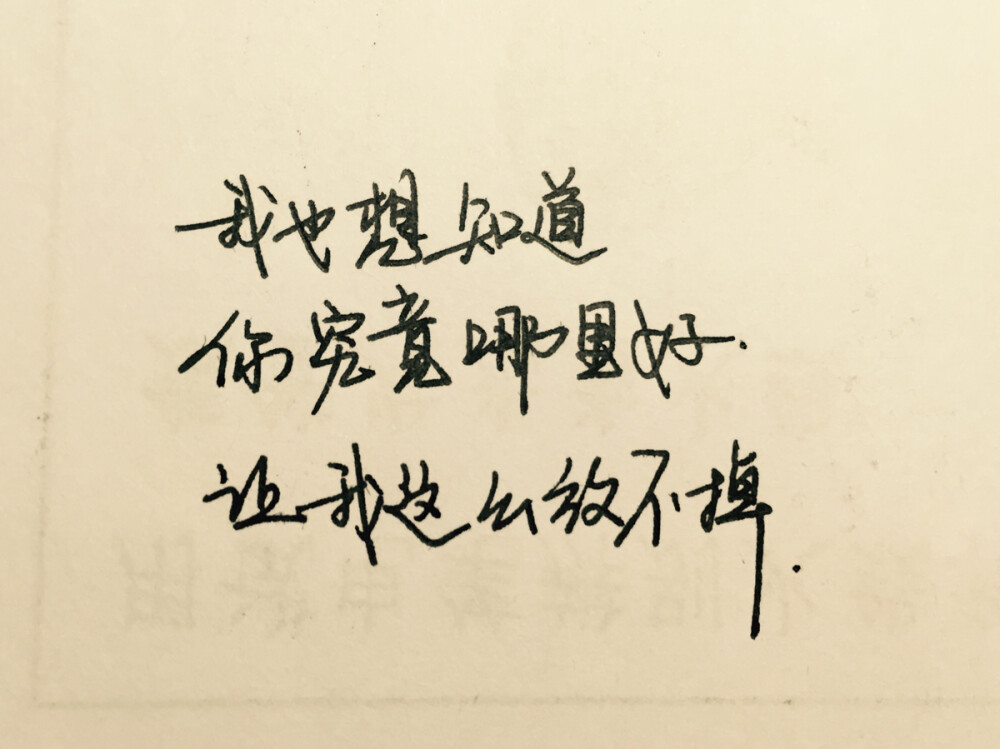 我也想知道
你究竟哪里好.
让我这么放不掉.